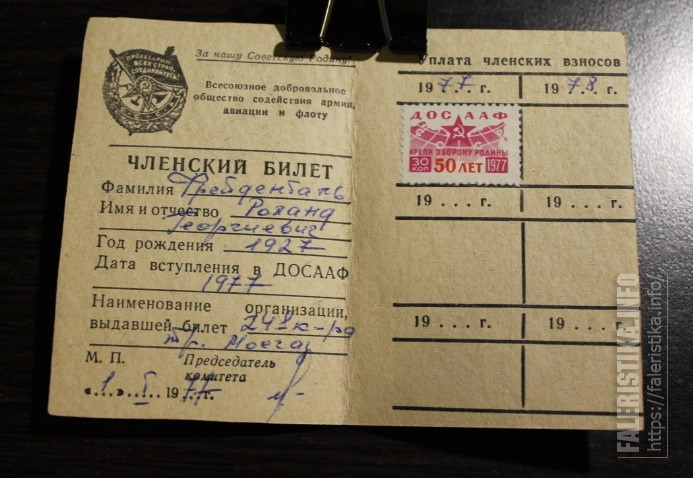 ПРОЛЕТАРИИ
ВСЕХ СТРАН
СОЕДИНЯЙТЕСЬ!
За нашу Советскую Родину!
Всесоюзное добровольное
общество содействия армии,
авиации и флоту
ЧЛЕНСКИЙ БИЛЕТ
Фамилия Фрейденталь
Имя и отчество Роланд
Георгиевич
Год рождения 1927
Дата вступления в ДОСААФ
1977
Наименование организации,
выдавшей билет
тр.
М. П. Председатель
комитета
«1» I 1977 г.
Уплата членских взносов
1977. г. 1978. г.
ДОСААФ
КРЕПИ ОБОРОНУ РОДИНЫ
30 КОП 50 ЛЕТ 1977
19 . . . г. 19 . . . г.
19 . . . г. 19 . . . г.
FALERISTIKA.INFO
https://faleristika.info/